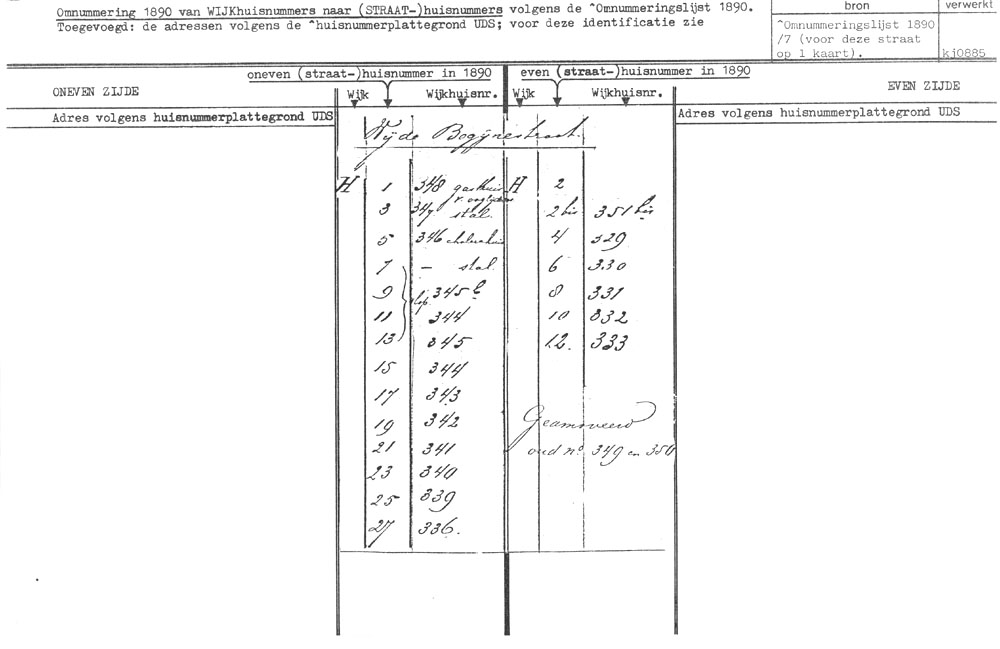 Omnummering 1890 van WIJKhuisnummers naar (STRAAT-)huisnummers volgens de ^Omnummeringslijst 1890.
Toegevoegd: de adressen volgens de ^huisnummerplattegrond UDS; voor deze identificatie zie
bron
verwerkt
^Omnummeringslijst 1890
/7 (voor deze straat
op 1 kaart).
kj0885
oneven (straat-)huisnummer in 1890
even (straat-)huisnummer in 1890
ONEVEN ZIJDE
Wijk Wijkhuisnr.
Wijk Wijkhuisnr.
EVEN ZIJDE
Adres volgens huisnummerplattegrond UDS
Adres volgens huisnummerplattegrond UDS
Wijde Begijnestraat.
H 1 348 gasthuis
v. ooglijders
3 347 stal
5 346
7 — stal
9 345 b
slop
11 344
13 345
15 344
17 343
19 342
21 341
23 340
25 339
27 336.
H 2
2 bis 351 bis
4 329
6 330
8 331
10 332
12. 333
Geamoveerd
oud no. 349 en 350